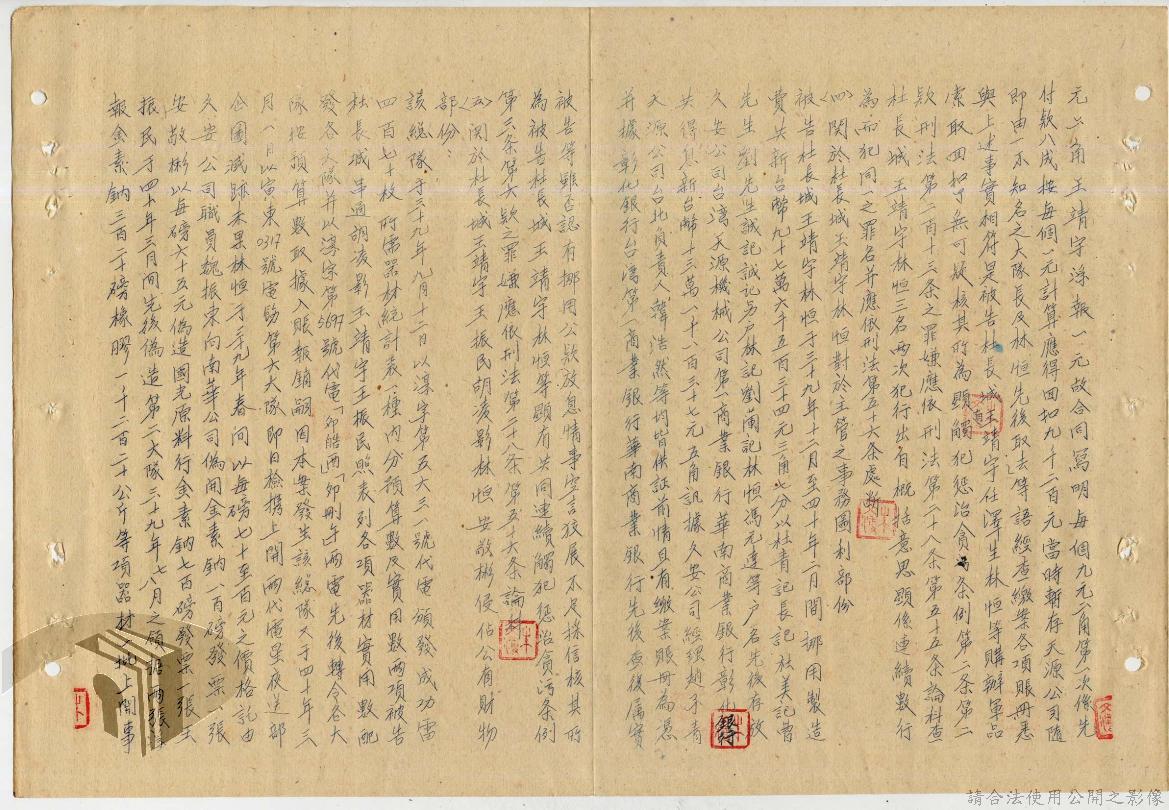 元六角王靖宇浮報一元故合同寫明每個九元六角第二次係先
付款八成按每個一元計算應得回扣九千一百元當時暫存天源公司隨
即由一不知名之大隊長及林恒先後取去等語經查繳案各項賬冊悉
與上述事實相符是被告杜長城王靖宇任澤生林恒等購辦軍品
索取回扣了無可疑核其所為顯觸犯懲治貪污條例第二條第二
款刑法第二百十三條之罪嫌應依刑法第二十八條第五十五條論科查
杜長城王靖宇林恒三名兩次犯行出自概括意思顯係連續數行
為而犯同一之罪名并應依刑法第五十六條處斷
(四)關於杜長城王靖宇林恒對於主管之事務圖利部份
被告杜長城王靖宇林恒于三十九年十二月至四十年二月間挪用製造
費共新台幣九十七萬六千五百三十四元三角七分以杜青記長記杜美記曹
先生劉先生誠記誠記另戶林記劉蘭記林恒馮元達等戶名先後存放
久安公司台灣天源機械公司第一商業銀行華南商業銀行彰化銀行
共得息新台幣十三萬一千一百三十七元五角訊據久安公司經理趙子青
天源公司台北負責人韓浩然等均皆供証前情且有繳案賬冊為憑
并據彰化銀行台灣第一商業銀行華南商業銀行先後查復屬實
被告等雖否認有挪用公款放息情事空言狡展不足採信核其所
為被告杜長城王靖宇林恒等顯有共同連續觸犯懲治貪污條例
第三條第六款之罪嫌應依刑法第二十八條第五十六條論科
(五)関於杜長城王靖宇王振民胡凌影林恒安敬彬侵佔公有財物
部份：
該總隊于三十九年九月十二日以渫字第五六三一號代電頒發成功雷
四百七十枚所需器材統計表一種內分預算數及實用數兩項被告
杜長城串通胡凌影王靖宇王振民照表列各項器材實用數配
發各大隊并以渫字第5697號代電「卯皓西」「卯刪午」兩電先後轉令各大
隊按預算數取據入賬報銷嗣因本案發生該總隊又于四十年三
月一日以寅東0317號電飭第六大隊即日撿携上開兩代電星夜送部
企圖滅跡未果林恒于三十九年春間以每磅七十至一百元之價格託由
久安公司職員魏振東向南華公司偽開金素鈉一百磅發票一張
安敬彬以每磅六十五元偽造國光原料行金素鈉七百磅發票一張王
振民于四十年三月間先後偽造第二大隊三十九年七八月之領據兩張
報金素鈉三百二十磅橡膠一千二百二十公斤等項器材一批上開事
銀行
請合法使用公開之影像